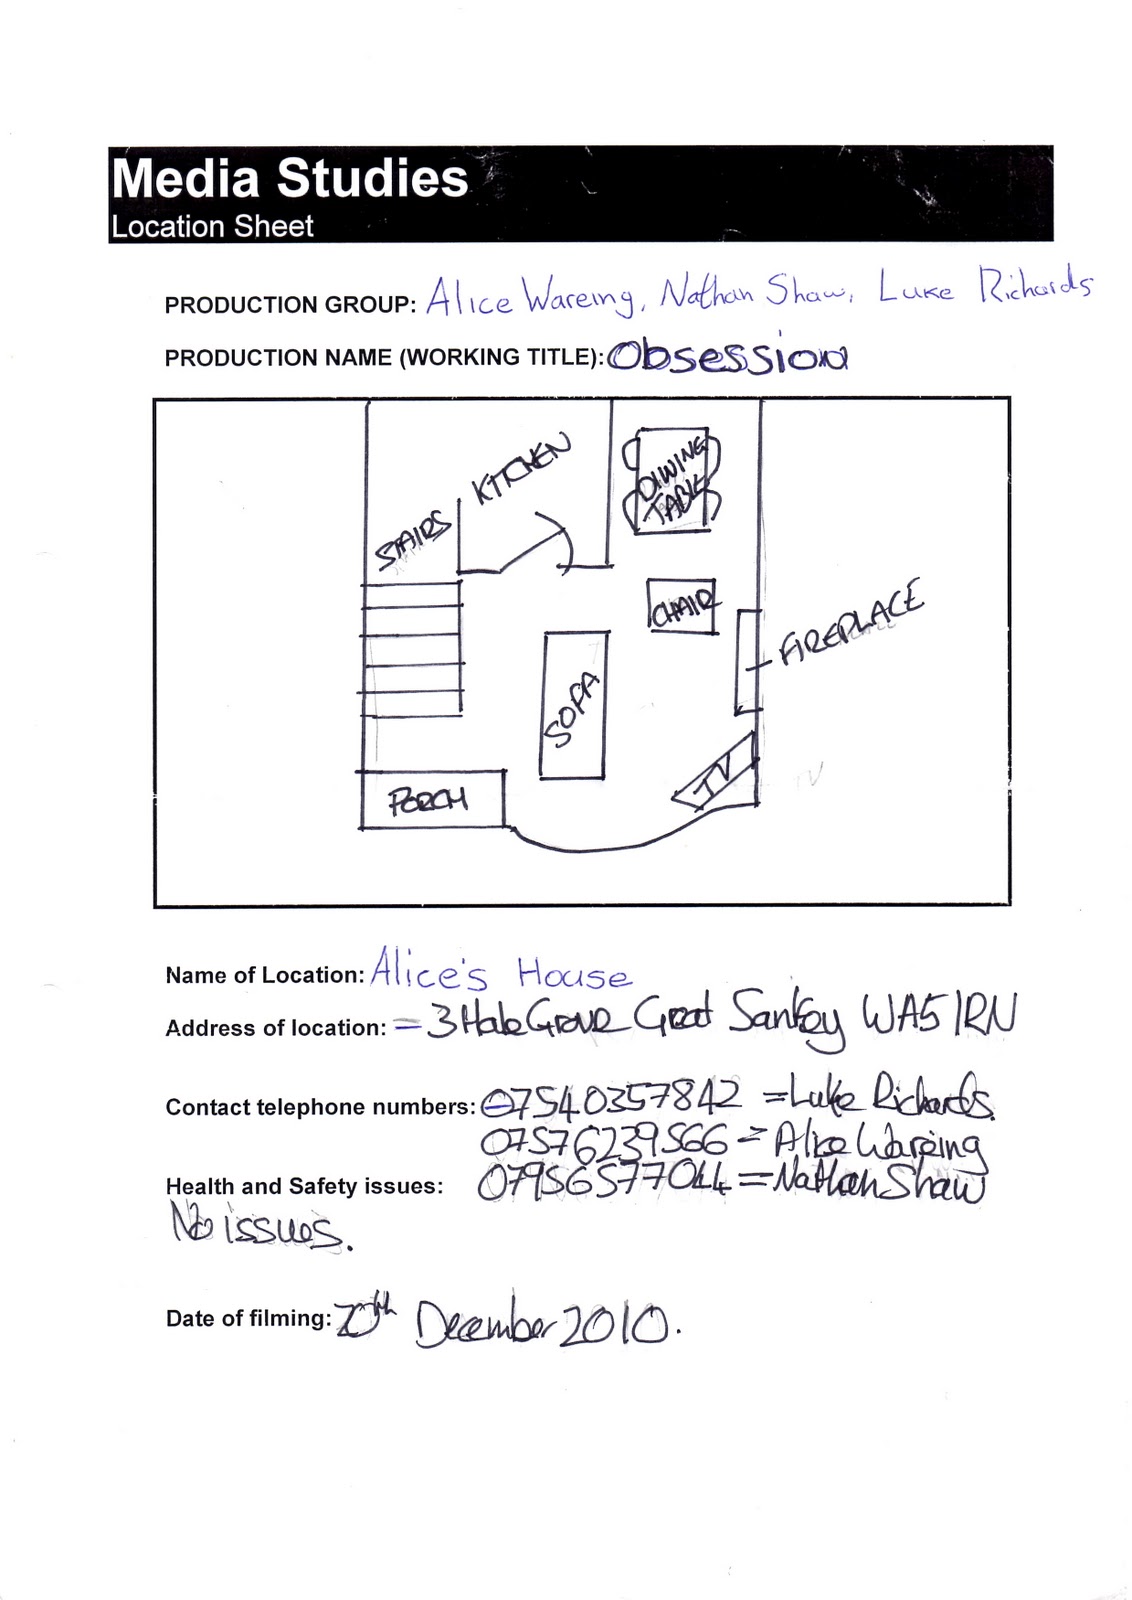 Media Studies
Location Sheet
PRODUCTION GROUP: Alice Wareing, Nathan Shaw, Luke Richards
PRODUCTION NAME (WORKING TITLE): Obsession
KITCHEN
DINING
TABLE
STAIRS
CHAIR
FIREPLACE
SOFA
TV
PORCH
Name of Location: Alice's House
Address of location: = 3 Hale Grove Great Sankey WA5 1RN
Contact telephone numbers: 07540357842 = Luke Richards.
07576239566 = Alice Wareing
Health and Safety issues: 07956577044 = Nathan Shaw
No issues.
Date of filming: 20th December 2010.